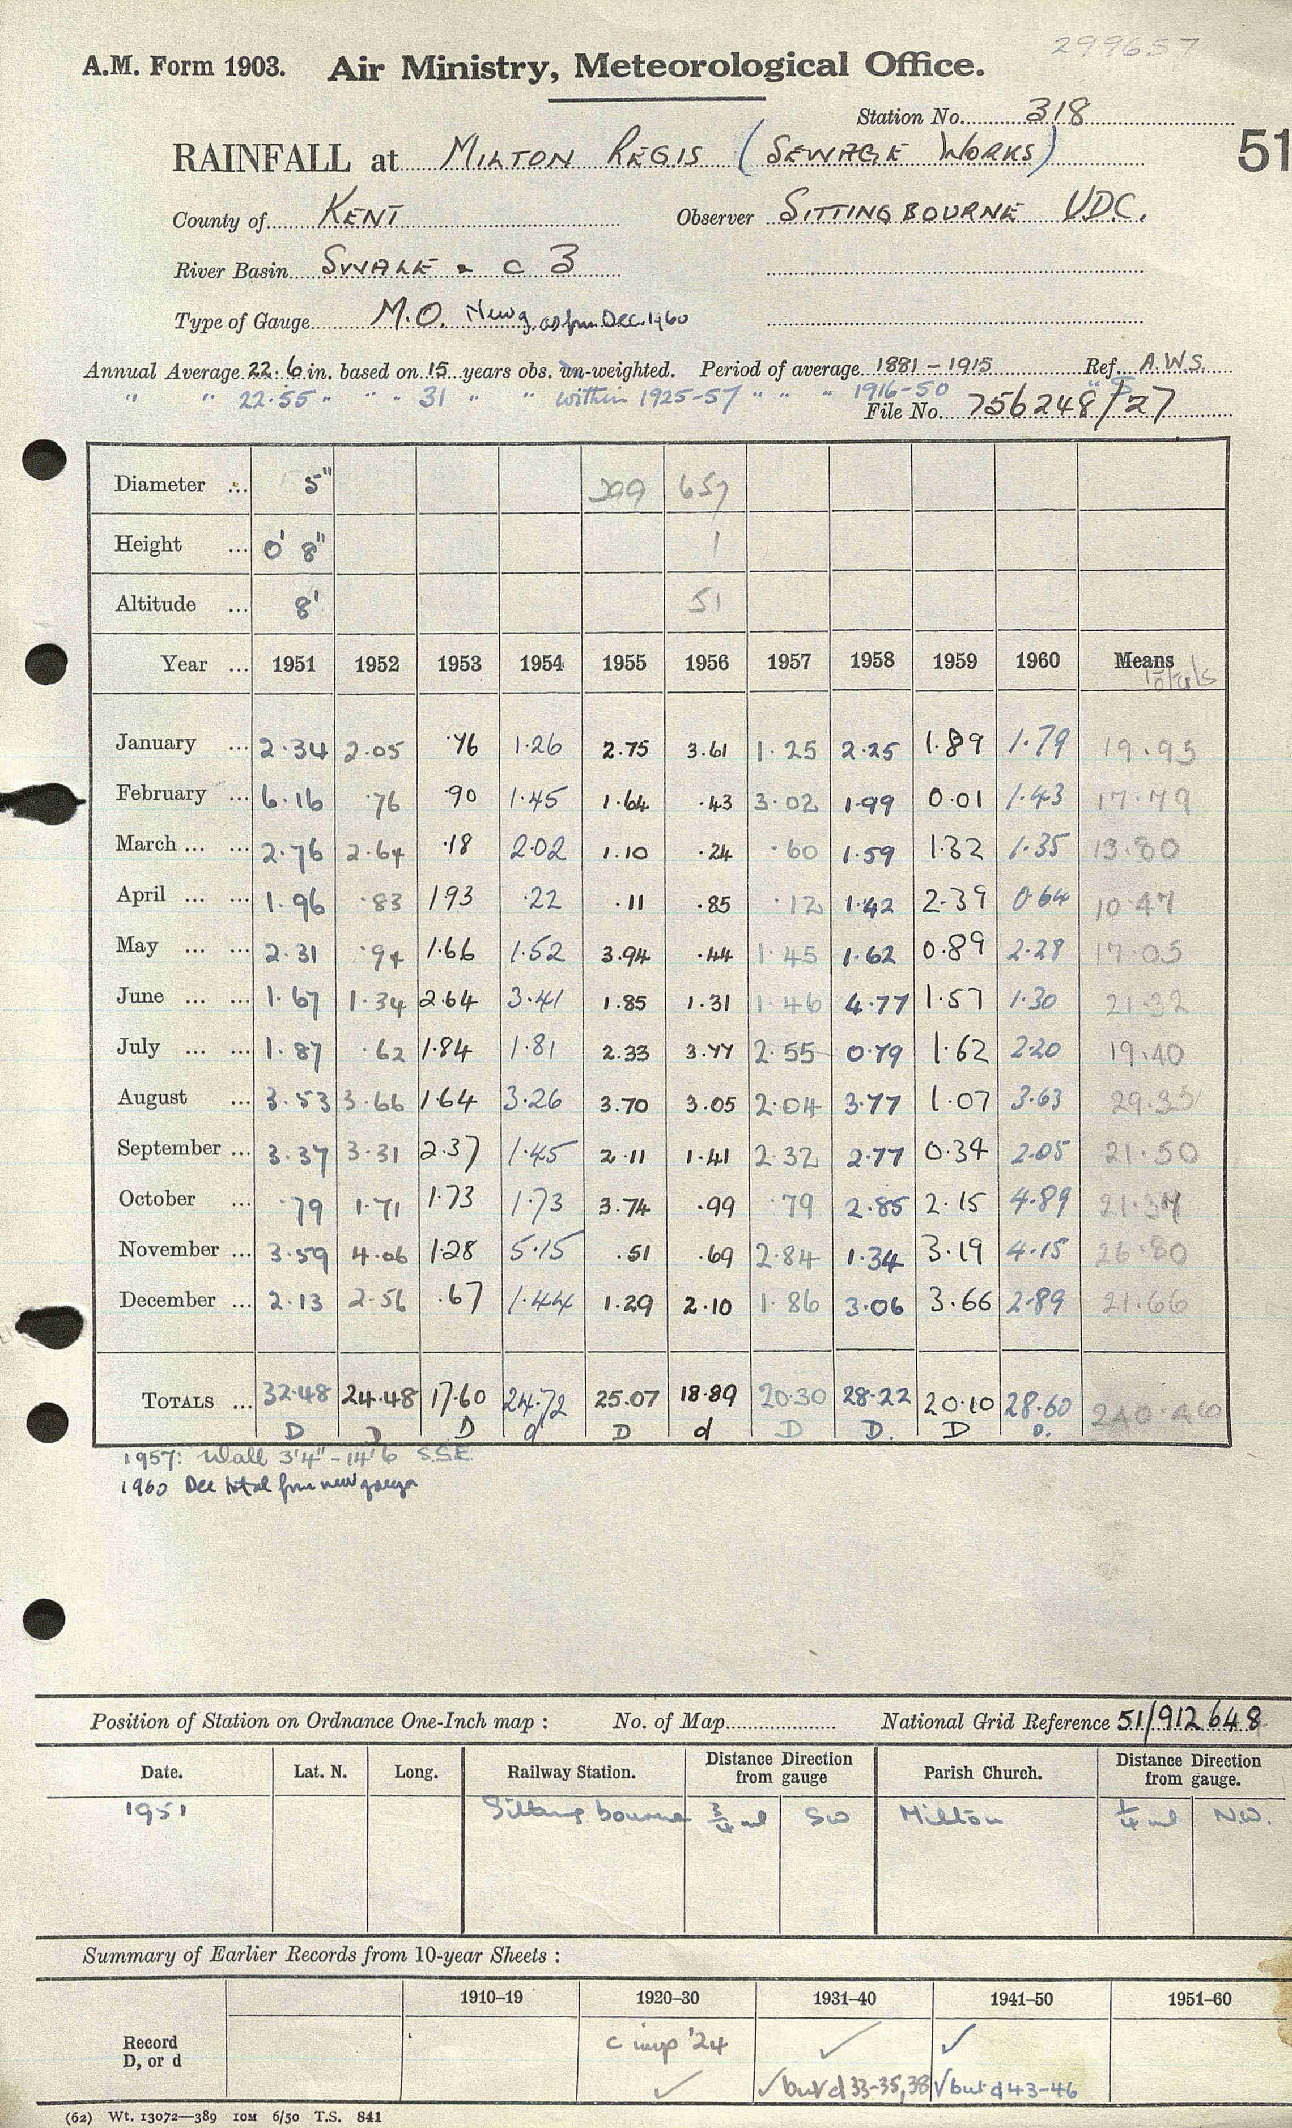 299657
A.M. Form 1903. Air Ministry, Meteorological Office.
Station No. 318
51
RAINFALL at MILTON REGIS (SEWAGE WORKS)
County of KENT Observer SITTINGBOURNE UDC.
River Basin SWALE & C 3
Type of Gauge M.O. New g. as from Dec. 1960
Annual Average 22.6 in. based on 15 years obs. un-weighted. Period of average 1881 – 1915 Ref. A.W.S.
" " 22.55 " " " 31 " " within 1925-57 " " " 1916-50 " "
File No. 756248/27
Diameter ... 5" 299 657
Height ... 0' 8" 1
Altitude ... 8' 51
Year ... 1951 1952 1953 1954 1955 1956 1957 1958 1959 1960 Means Totals
January ... 2.34 2.05 .76 1.26 2.75 3.61 1.25 2.25 1.89 1.79 19.95
February ... 6.16 .76 .90 1.45 1.64 .43 3.02 1.99 0.01 1.43 17.79
March ... ... 2.76 2.64 .18 2.02 1.10 .24 .60 1.59 1.32 1.35 13.80
April ... ... 1.96 .83 1.93 .22 .11 .85 .12 1.42 2.39 0.64 10.47
May ... ... 2.31 .94 1.66 1.52 3.94 .44 1.45 1.62 0.89 2.28 17.05
June ... ... 1.67 1.34 2.64 3.41 1.85 1.31 1.46 4.77 1.57 1.30 21.32
July ... ... 1.87 .62 1.84 1.81 2.33 3.77 2.55 0.79 1.62 2.20 19.40
August ... 3.53 3.66 1.64 3.26 3.70 3.05 2.04 3.77 1.07 3.63 29.35
September ... 3.37 3.31 2.37 1.45 2.11 1.41 2.32 2.77 0.34 2.05 21.50
October ... .79 1.71 1.73 1.73 3.74 .99 .79 2.85 2.15 4.89 21.37
November ... 3.59 4.06 1.28 5.15 .51 .69 2.84 1.34 3.19 4.15 26.80
December ... 2.13 2.56 .67 1.44 1.29 2.10 1.86 3.06 3.66 2.89 21.66
TOTALS ... 32.48 24.48 17.60 24.72 25.07 18.89 20.30 28.22 20.10 28.60 240.46
D D D d D d D D. D D.
1957: Wall 3'4" – 14'6 S.S.E.
1960 Dec total from new gauge
Position of Station on Ordnance One-Inch map : No. of Map National Grid Reference 51/912648
Date. Lat. N. Long. Railway Station. Distance Direction from gauge Parish Church. Distance Direction from gauge.
1951 Sittingbourne 3/4 ml SW Milton 1/4 ml N.W.
Summary of Earlier Records from 10-year Sheets :
1910–19 1920–30 1931–40 1941–50 1951–60
Record D, or d
c imp '24 ✓ ✓
✓ ✓ but d 33-35, 38 ✓ but d 43-46
(62) Wt. 13072—389 10M 6/50 T.S. 841